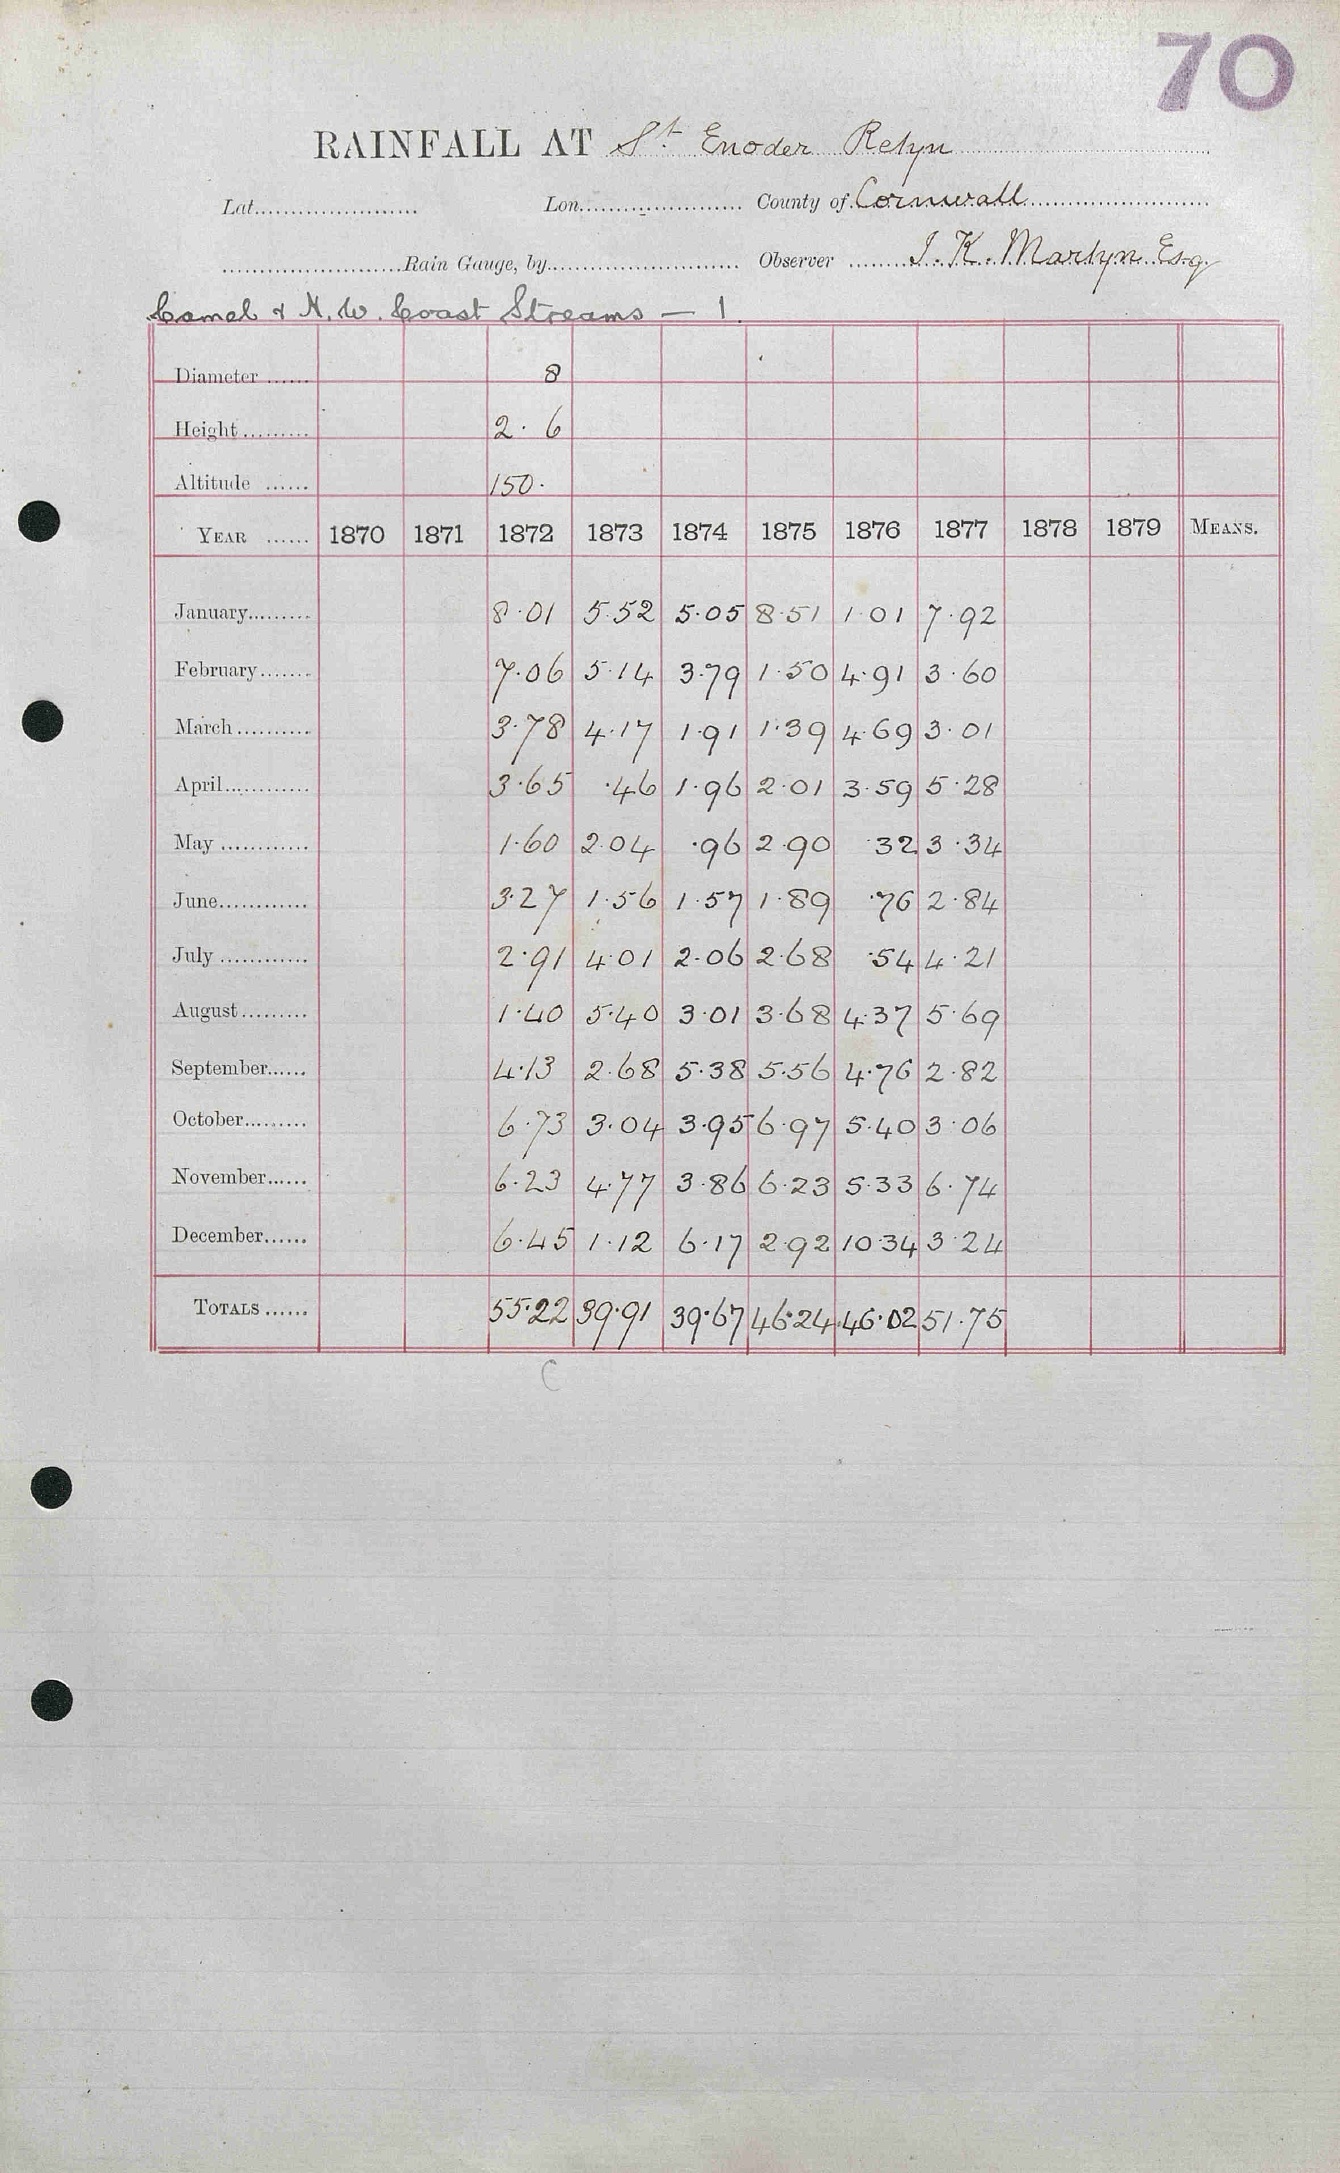 70
RAINFALL AT St Enoder Retyn
Lat. Lon. County of Cornwall
Rain Gauge, by Observer I. K. Martyn Esq.
Camel & N. W. Coast Streams — 1.
Diameter 8
Height 2 · 6
Altitude 150 ·
YEAR 1870 1871 1872 1873 1874 1875 1876 1877 1878 1879 MEANS.
January 8·01 5·52 5·05 8·51 1·01 7·92
February 7·06 5·14 3·79 1·50 4·91 3·60
March 3·78 4·17 1·91 1·39 4·69 3·01
April 3·65 ·46 1·96 2·01 3·59 5·28
May 1·60 2·04 ·96 2·90 ·32 3·34
June 3·27 1·56 1·57 1·89 ·76 2·84
July 2·91 4·01 2·06 2·68 ·54 4·21
August 1·40 5·40 3·01 3·68 4·37 5·69
September 4·13 2·68 5·38 5·56 4·76 2·82
October 6·73 3·04 3·95 6·97 5·40 3·06
November 6·23 4·77 3·86 6·23 5·33 6·74
December 6·45 1·12 6·17 2·92 10·34 3·24
TOTALS 55·22 39·91 39·67 46·24 46·02 51·75
C